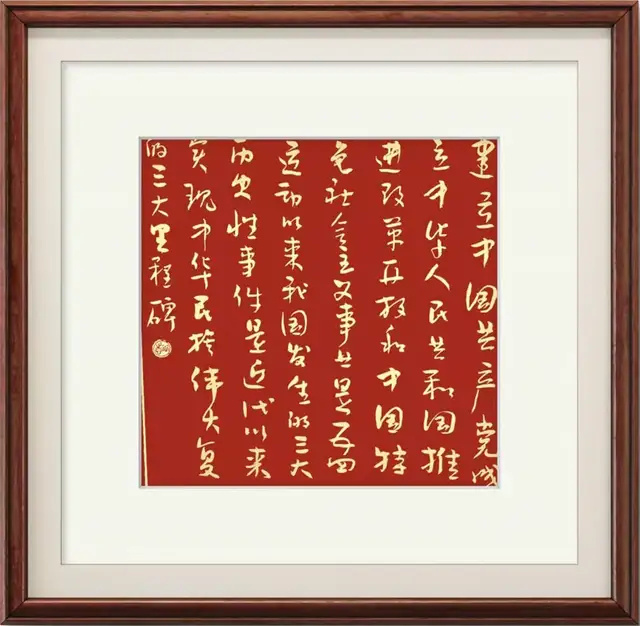 建立中国共产党成
立中华人民共和国推
进改革开放和中国特
色社会主义事业是五四
运动以来我国发生的三大
历史性事件是近代以来
实现中华民族伟大复
的三大里程碑